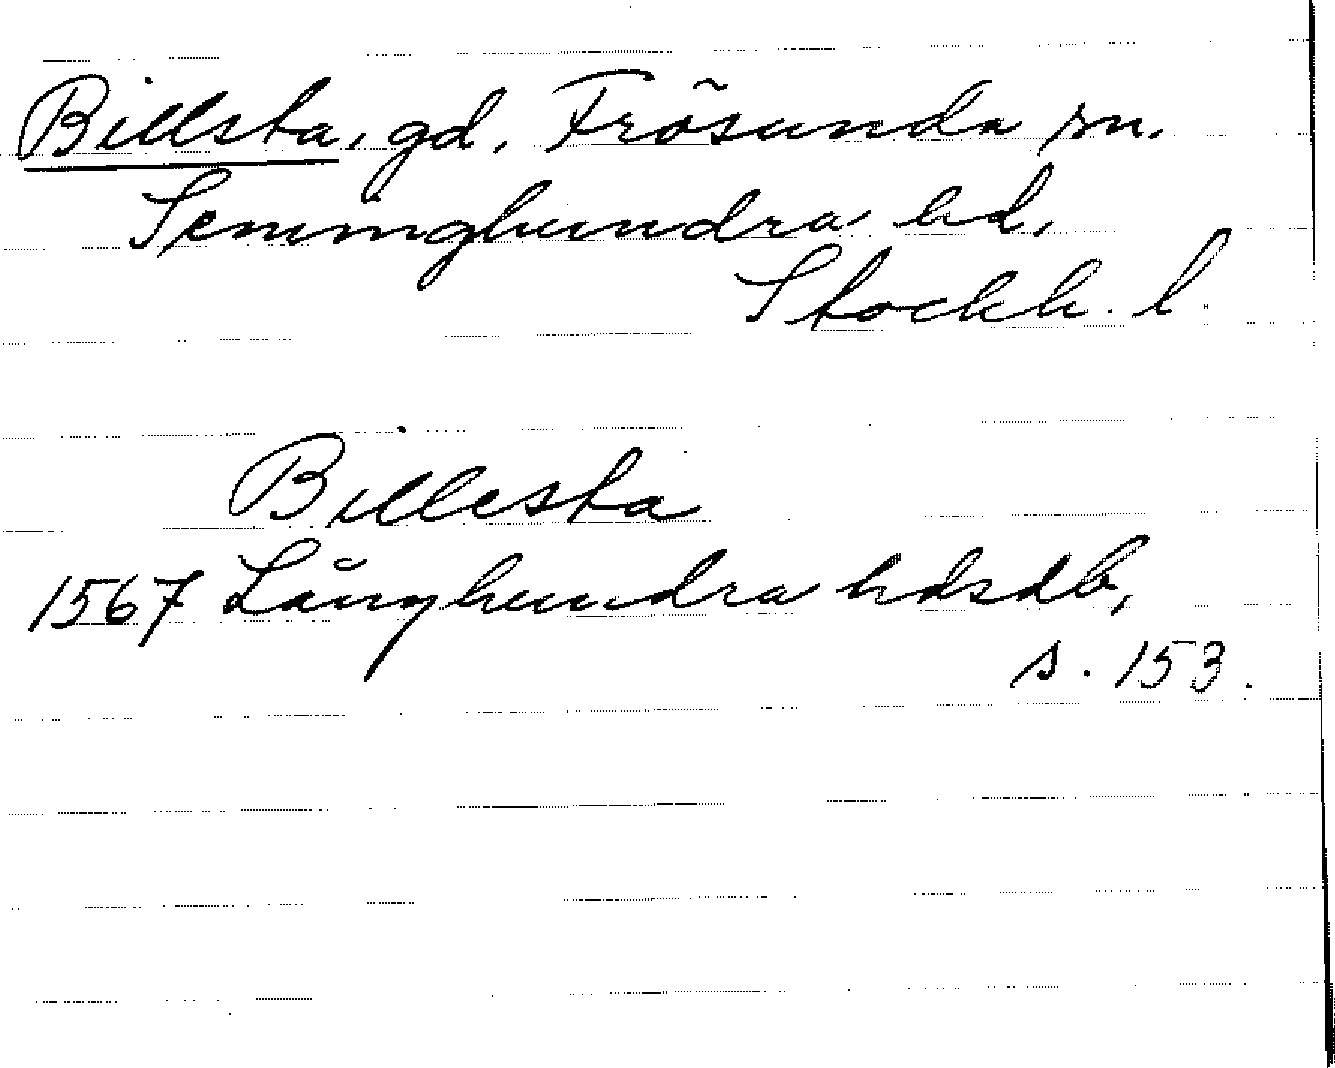 Billsta, gd, Frösunda sn,
Seminghundra hd,
Stockh. l.
Billesta
1567 Långhundra hdsdb,
s. 153.